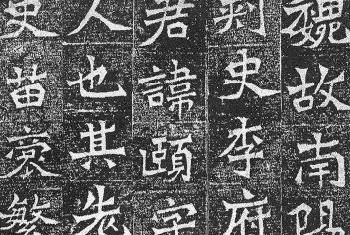 魏故南陽
刺史李府
君諱頤字
人也其先
史苗裔繁